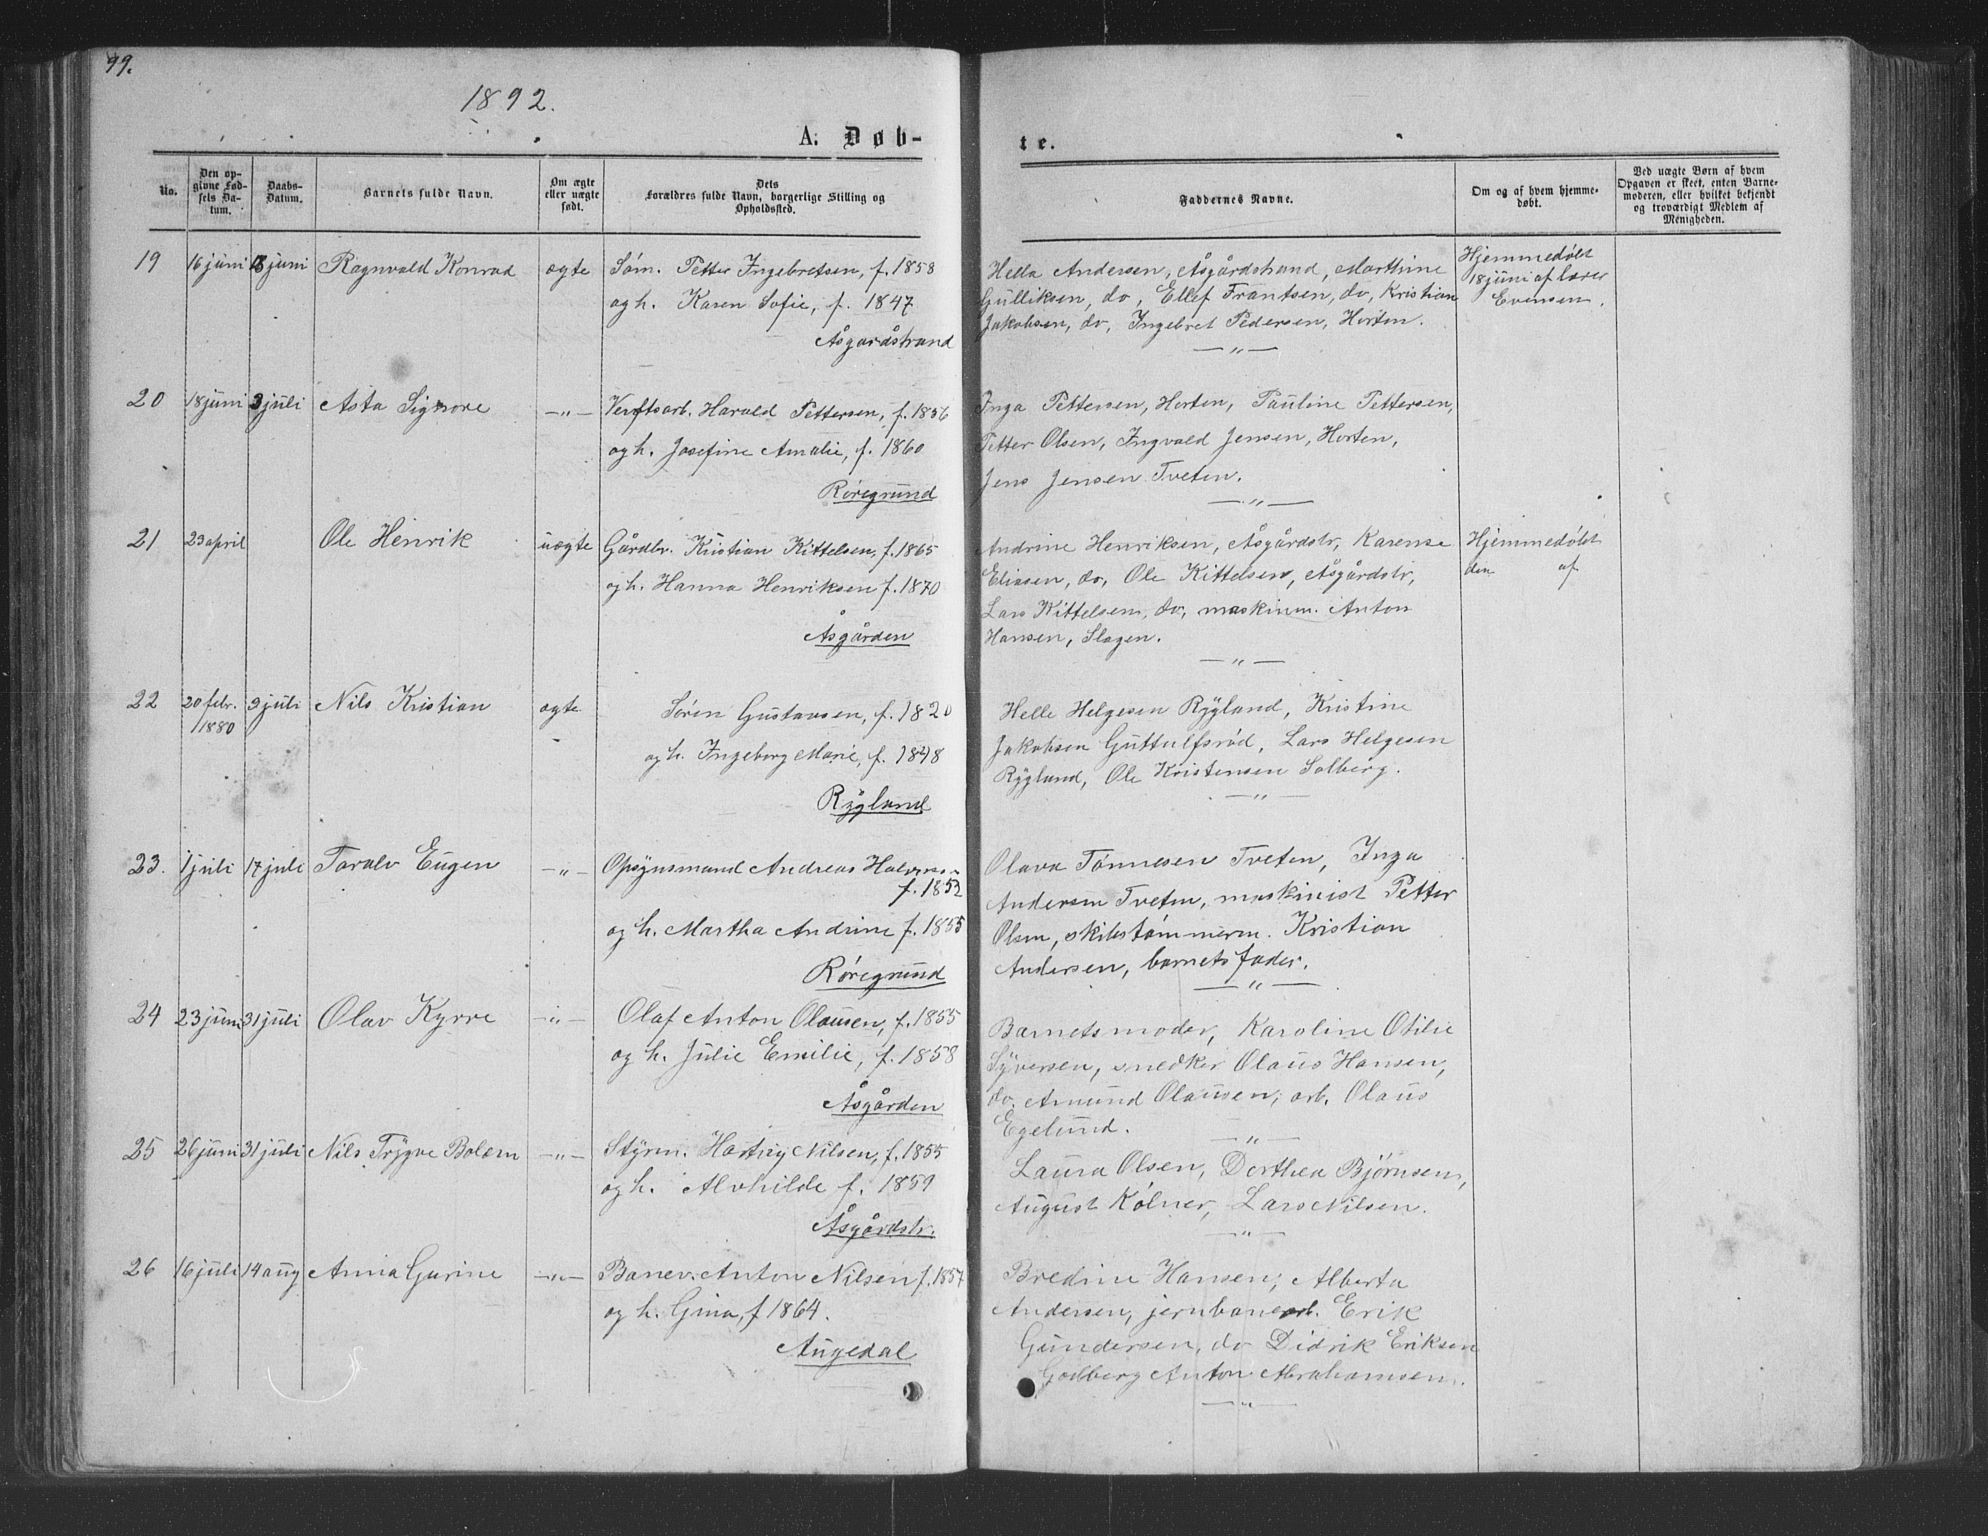 99.
1892.
A. Døb-
te.
No.
Den op-
givne Fød-
sels Da-
tum.
Daabs-
Datum.
Barnets fulde Navn.
Om ægte
eller uægte
født.
Dets
Forældres fulde Navn, borgerlige Stilling og
Opholdssted.
Faddernes Navne.
Om og af hvem hjemme-
døbt.
Ved uægte Børn af hvem
Opgaven er skeet, enten Barne-
moderen, eller hvilket bekjendt
og troværdigt Medlem af
Menigheden.
19 16 juni 18 juni Ragnvald Konrad ægte Søm. Petter Ingebretsen, f. 1858
og h. Karen Sofie, f. 1847
Åsgårdstrand
Hella Andersen, Åsgårdstrand, Marthine
Gulliksen, do, Ellef Frantsen, do, Kristian
Jakobsen, do, Ingebret Pedersen, Horten.
—"—
Hjemmedøbt
18 juni af lærer
Evensen.
20 18 juni 3 juli Asta Signore —"— Verftsarb. Harald Pettersen, f. 1856
og h. Josefine Amalie, f. 1860
Røregrund
Inga Pettersen, Horten, Pauline Pettersen,
Petter Olsen, Ingvald Jensen, Horten,
Jens Jensen Tveten.
—"—
21 23 april Ole Henrik uægte Gårdbr. Kristian Kittelsen, f. 1865
og h. Hanna Henriksen f. 1870
Åsgården
Andrine Henriksen, Åsgårdstr, Karense
Eliasen, do, Ole Kittelsen, Åsgårdstr,
Lars Kittelsen, do, maskinm. Anton
Hansen, Slagen.
—"—
Hjemmedøbt
den af
22 20 febr. 9 juli Nils Kristian ægte. Søren Gustavsen, f. 1820
1880
og h. Ingeborg Marie, f. 1848
Rygland
Helle Helgesen Rygland, Kristine
Jakobsen Guttulfsrød, Lars Helgesen
Rygland, Ole Kristensen Solberg.
—"—
23. 1 juli 17 juli Toralv Eugen —"— Opsynsmand Andreas Halvorsen
f. 1852
og h. Martha Andrine f. 1855
Røregrund
Olava Tønnesen Tveten, Inga
Andersen Tveten, maskinist Petter
Olsen, skibstømmerm. Kristian
Andersen, barnets fader.
—"—
24 23 juni 31 juli Olav Kyrre —"— Olaf Anton Olausen, f. 1855
og h. Julie Emilie, f. 1858
Åsgården
Barnets moder, Karoline Otilie
Syversen, snedker Olaus Hansen,
do. Amund Olausen, arb. Olaus
Egelund.
—"—
25 26 juni 31 juli Nils Trygve Bolærn —"— Styrm. Hartvig Nilsen, f. 1855
og h. Alvhilde f. 1859
Åsgårdstr.
Laura Olsen, Dorthea Bjørnsen,
August Kølner, Lars Nilsen.
—"—
26 16 juli 14 aug Anna Gurine —"— Banev. Anton Nilsen f. 1857
og h. Gina, f 1864.
Augedal
Bredine Hansen, Alberta
Andersen, jernbanearb. Erik
Gundersen, do Didrik Eriksen
Godberg Anton Abrahamsen.
—"—